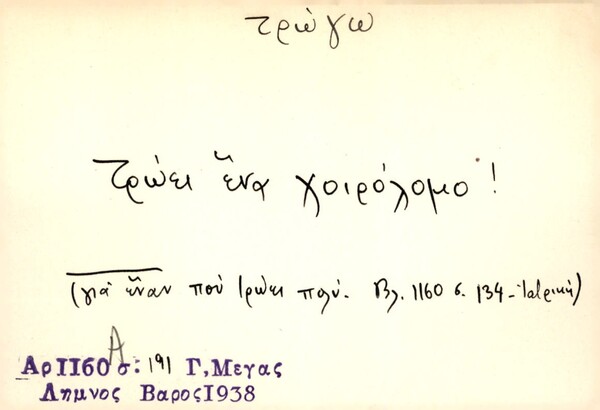 τρώγω
Τρώει ἕνα χοιρόλομο!
(γιὰ ἕναν ποὺ τρώει πολύ. Βλ. 1160 σ. 134 - Ἰατρική)
Α
Αρ 1160 σ: 191 Γ, Μεγας
Λημνος Βαρος 1938